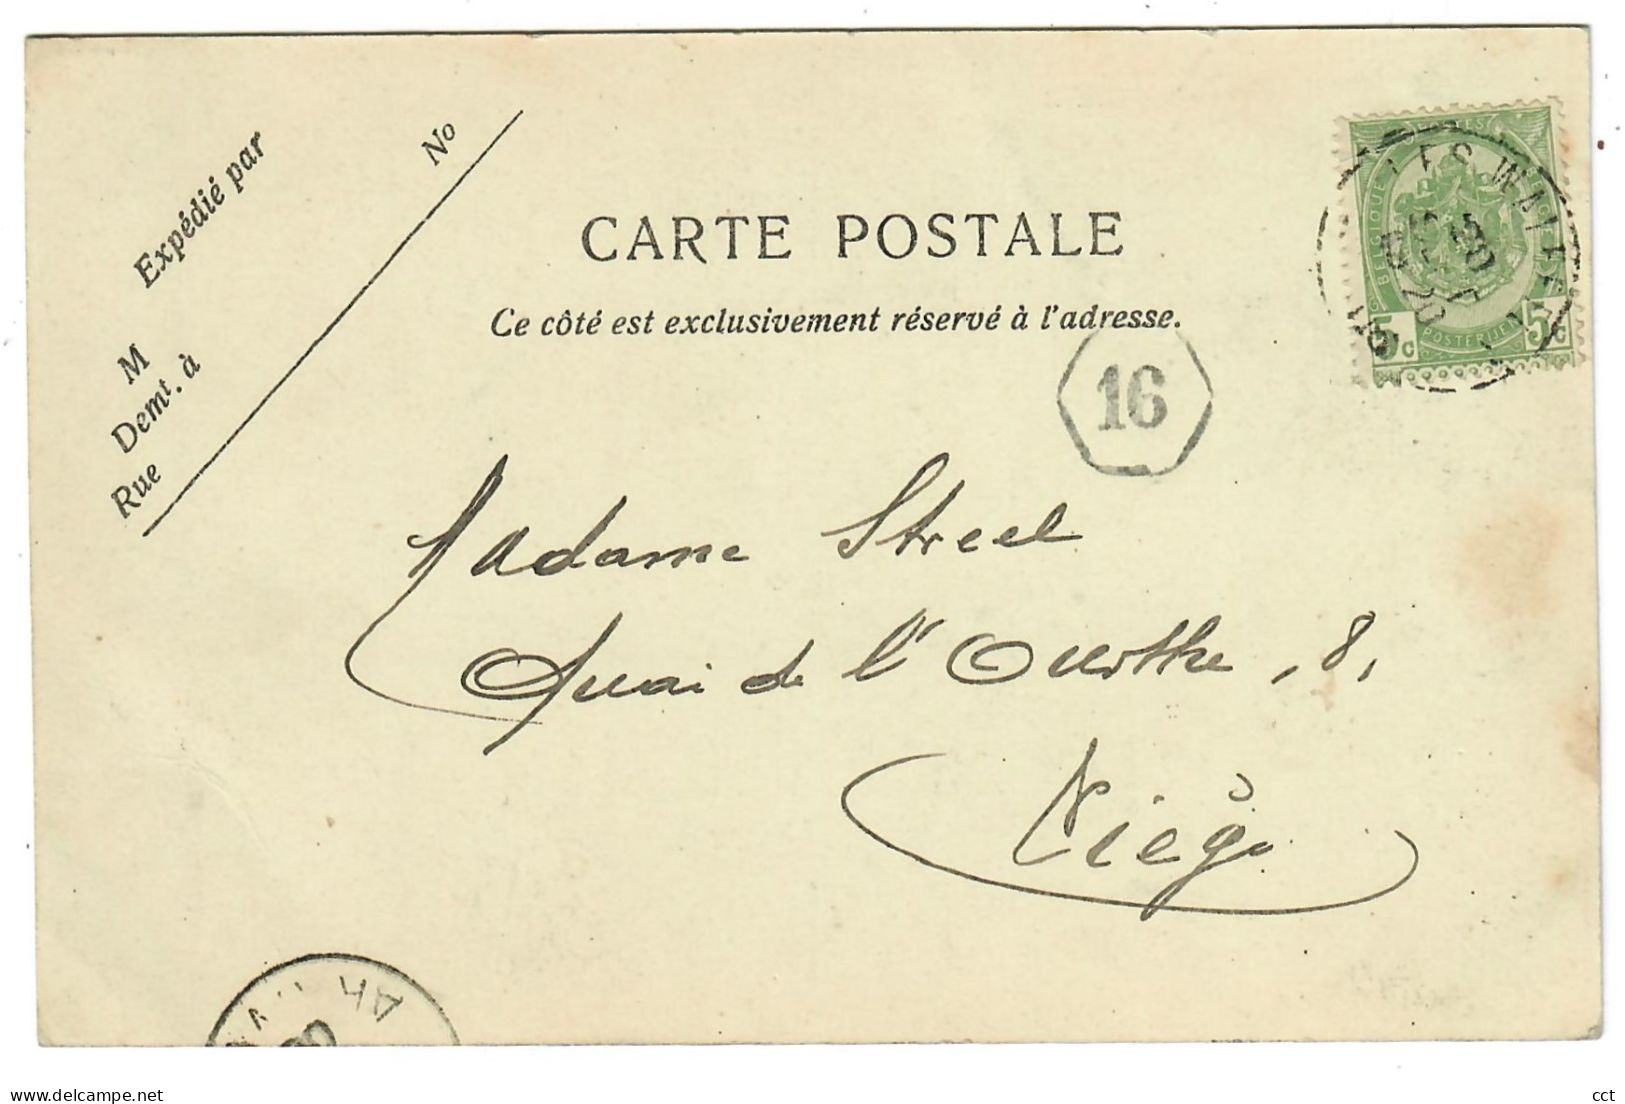 Expédié par
No
M
Demt. à
Rue
CARTE POSTALE
Ce côté est exclusivement réservé à l'adresse.
BELGIQUE
POSTES
POSTERIJEN
5c
5c
16
Madame Streel
Quai de l'Ourthe, 8,
Liége
delcampe.net
cct